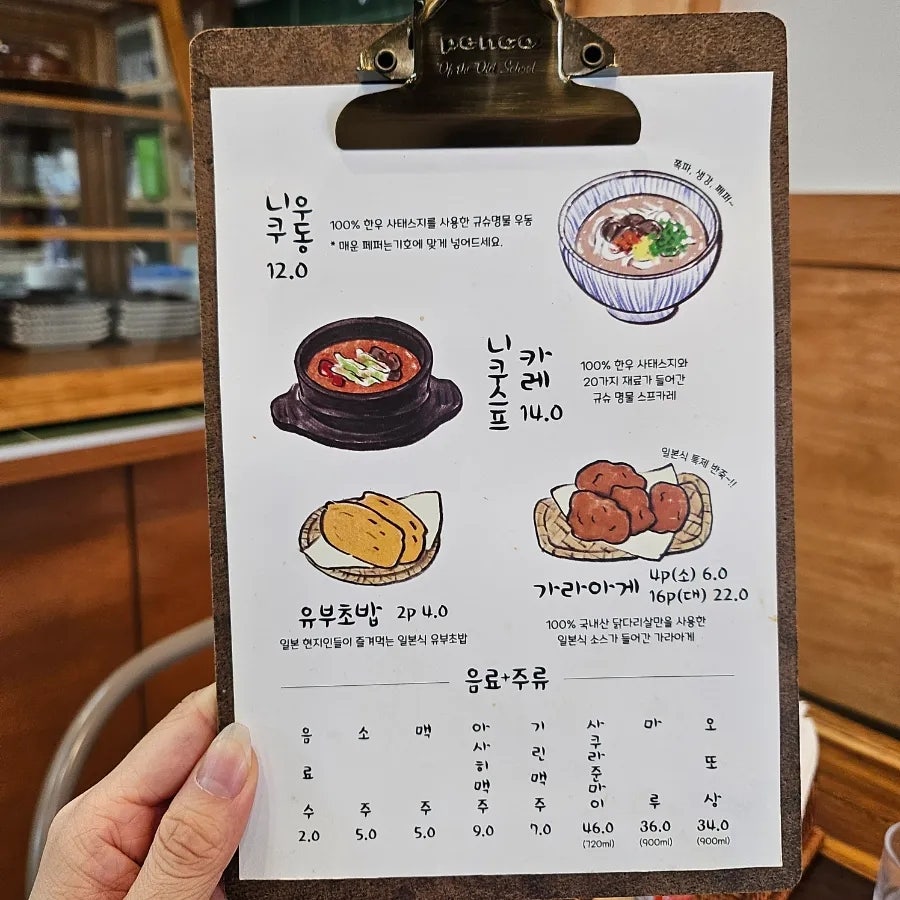 penco
Of the Old School
니쿠 우동
12.0
100% 한우 사태스지를 사용한 규슈명물 우동
* 매운 페퍼는기호에 맞게 넣어드세요.
쪽파, 생강, 페퍼~
니쿠스프 카레
14.0
100% 한우 사태스지와
20가지 재료가 들어간
규슈 명물 스프카레
일본식 특제 반죽~!!
유부초밥 2p 4.0
일본 현지인들이 즐겨먹는 일본식 유부초밥
가라아게 4p(소) 6.0
16p(대) 22.0
100% 국내산 닭다리살만을 사용한
일본식 소스가 들어간 가라아게
음료+주류
음료수 2.0
소주 5.0
맥주 5.0
아사히맥주 9.0
기린맥주 7.0
사쿠라준마이 46.0 (720ml)
마루 36.0 (900ml)
오또상 34.0 (900ml)